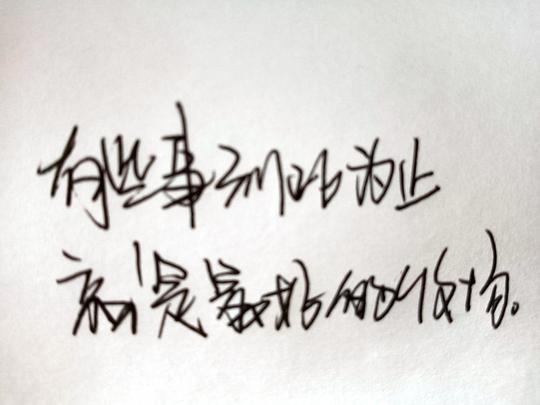 有些事到此为止
就是最好的收场。